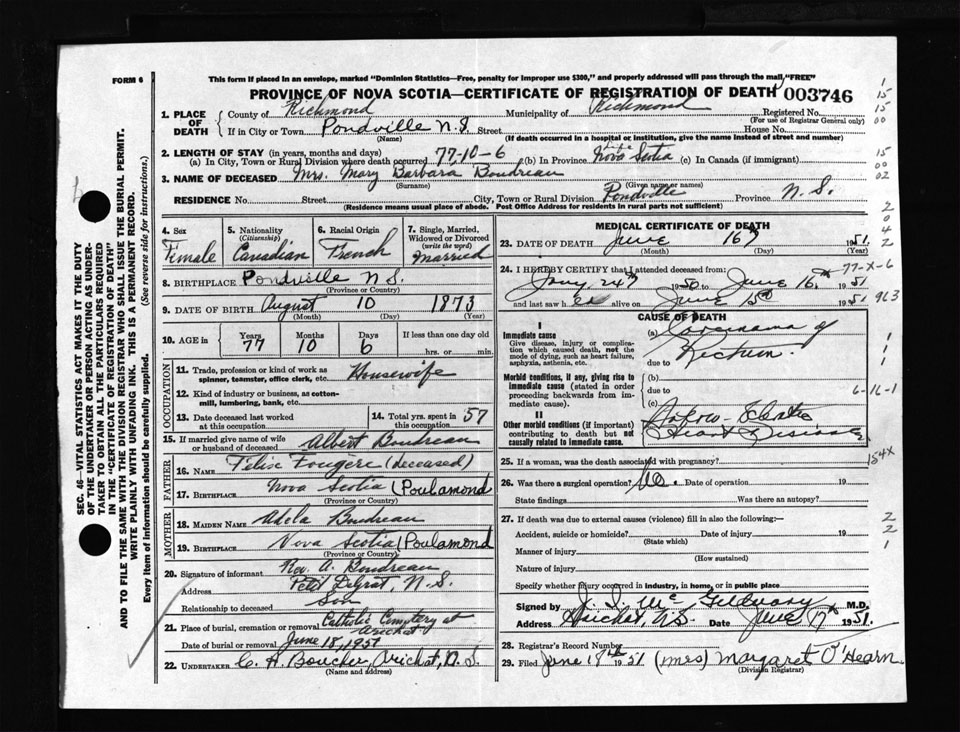 This form if placed in an envelope, marked "Dominion Statistics—Free, penalty for improper use $300," and properly addressed will pass through the mail "FREE"
FORM 6
PROVINCE OF NOVA SCOTIA—CERTIFICATE OF REGISTRATION OF DEATH 003746
1. PLACE OF DEATH
County of Richmond Municipality of Richmond Registered No.
(For use of Registrar General only)
If in City or Town Pondville N.S. Street House No.
(Name) (If death occurred in a hospital or institution, give the name instead of street and number)
2. LENGTH OF STAY (in years, months and days)
(a) In City, Town or Rural Division where death occurred 77-10-6 (b) In Province Nova Scotia (c) In Canada (if immigrant)
3. NAME OF DECEASED Mrs. Mary Barbara Boudreau
(Surname) (Given name or names)
RESIDENCE No. Street City, Town or Rural Division Pondville Province N.S.
(Residence means usual place of abode. Post Office Address for residents in rural parts not sufficient)
4. Sex Female
5. Nationality (Citizenship) Canadian
6. Racial Origin French
7. Single, Married, Widowed or Divorced (write the word) Married
8. BIRTHPLACE Pondville N.S.
(Province or Country)
9. DATE OF BIRTH August 10 1873
(Month) (Day) (Year)
10. AGE in Years 77 Months 10 Days 6 If less than one day old hrs. or min.
OCCUPATION
11. Trade, profession or kind of work as spinner, teamster, office clerk, etc. Housewife
12. Kind of industry or business, as cotton-mill, lumbering, bank, etc.
13. Date deceased last worked at this occupation
14. Total yrs. spent in this occupation 57
15. If married give name of wife or husband of deceased Albert Boudreau
FATHER
16. NAME Felix Fougere (deceased)
17. BIRTHPLACE Nova Scotia (Poulamond
(Province or Country)
MOTHER
18. MAIDEN NAME Adela Boudreau
19. BIRTHPLACE Nova Scotia (Poulamond
(Province or Country)
20. Signature of informant Rev. A. Boudreau
Address Petit Degrat, N.S.
Relationship to deceased Son
21. Place of burial, cremation or removal Catholic Cemetery at Arichat
Date of burial or removal June 18, 1951
22. UNDERTAKER C. A. Boucher, Arichat, N.S.
(Name and address)
MEDICAL CERTIFICATE OF DEATH
23. DATE OF DEATH June 16 1951.
(Month) (Day)
24. I HEREBY CERTIFY that I attended deceased from:
Jany. 24 1950 to June 16th 1951
and last saw her alive on June 15 1951
CAUSE OF DEATH
I
Immediate cause
Give disease, injury or complication which caused death, not the mode of dying, such as heart failure, asphyxia, asthenia, etc.
(a) Carcinoma of
due to Rectum.
Morbid conditions, if any, giving rise to immediate cause (stated in order proceeding backwards from immediate cause).
(b)
due to
(c)
II
Other morbid conditions (if important) contributing to death but not causally related to immediate cause.
Heart Disease
25. If a woman, was the death associated with pregnancy?
26. Was there a surgical operation? No. Date of operation 19
State findings Was there an autopsy?
27. If death was due to external causes (violence) fill in also the following:—
Accident, suicide or homicide? Date of injury 19
(State which)
Manner of injury
(How sustained)
Nature of injury
Specify whether injury occurred in industry, in home, or in public place
Signed by M.D.
Address Arichat, N.S. Date June 17 1951.
28. Registrar's Record Number
29. Filed June 18th 1951 (Mrs) Margaret O'Hearn.
(Division Registrar)
SEC. 46—VITAL STATISTICS ACT MAKES IT THE DUTY
OF THE UNDERTAKER OR PERSON ACTING AS UNDERTAKER TO OBTAIN ALL THE PARTICULARS REQUIRED
IN THE "CERTIFICATE OF REGISTRATION OF DEATH"
AND TO FILE THE SAME WITH THE DIVISION REGISTRAR WHO SHALL ISSUE THE BURIAL PERMIT.
WRITE PLAINLY WITH UNFADING INK. THIS IS A PERMANENT RECORD.
Every item of information should be carefully supplied. (See reverse side for instructions.)
1
15
15
00
15
00
02
2
0
4
2
77-X-6
963
1
1
1
6-16-1
154X
2
2
1